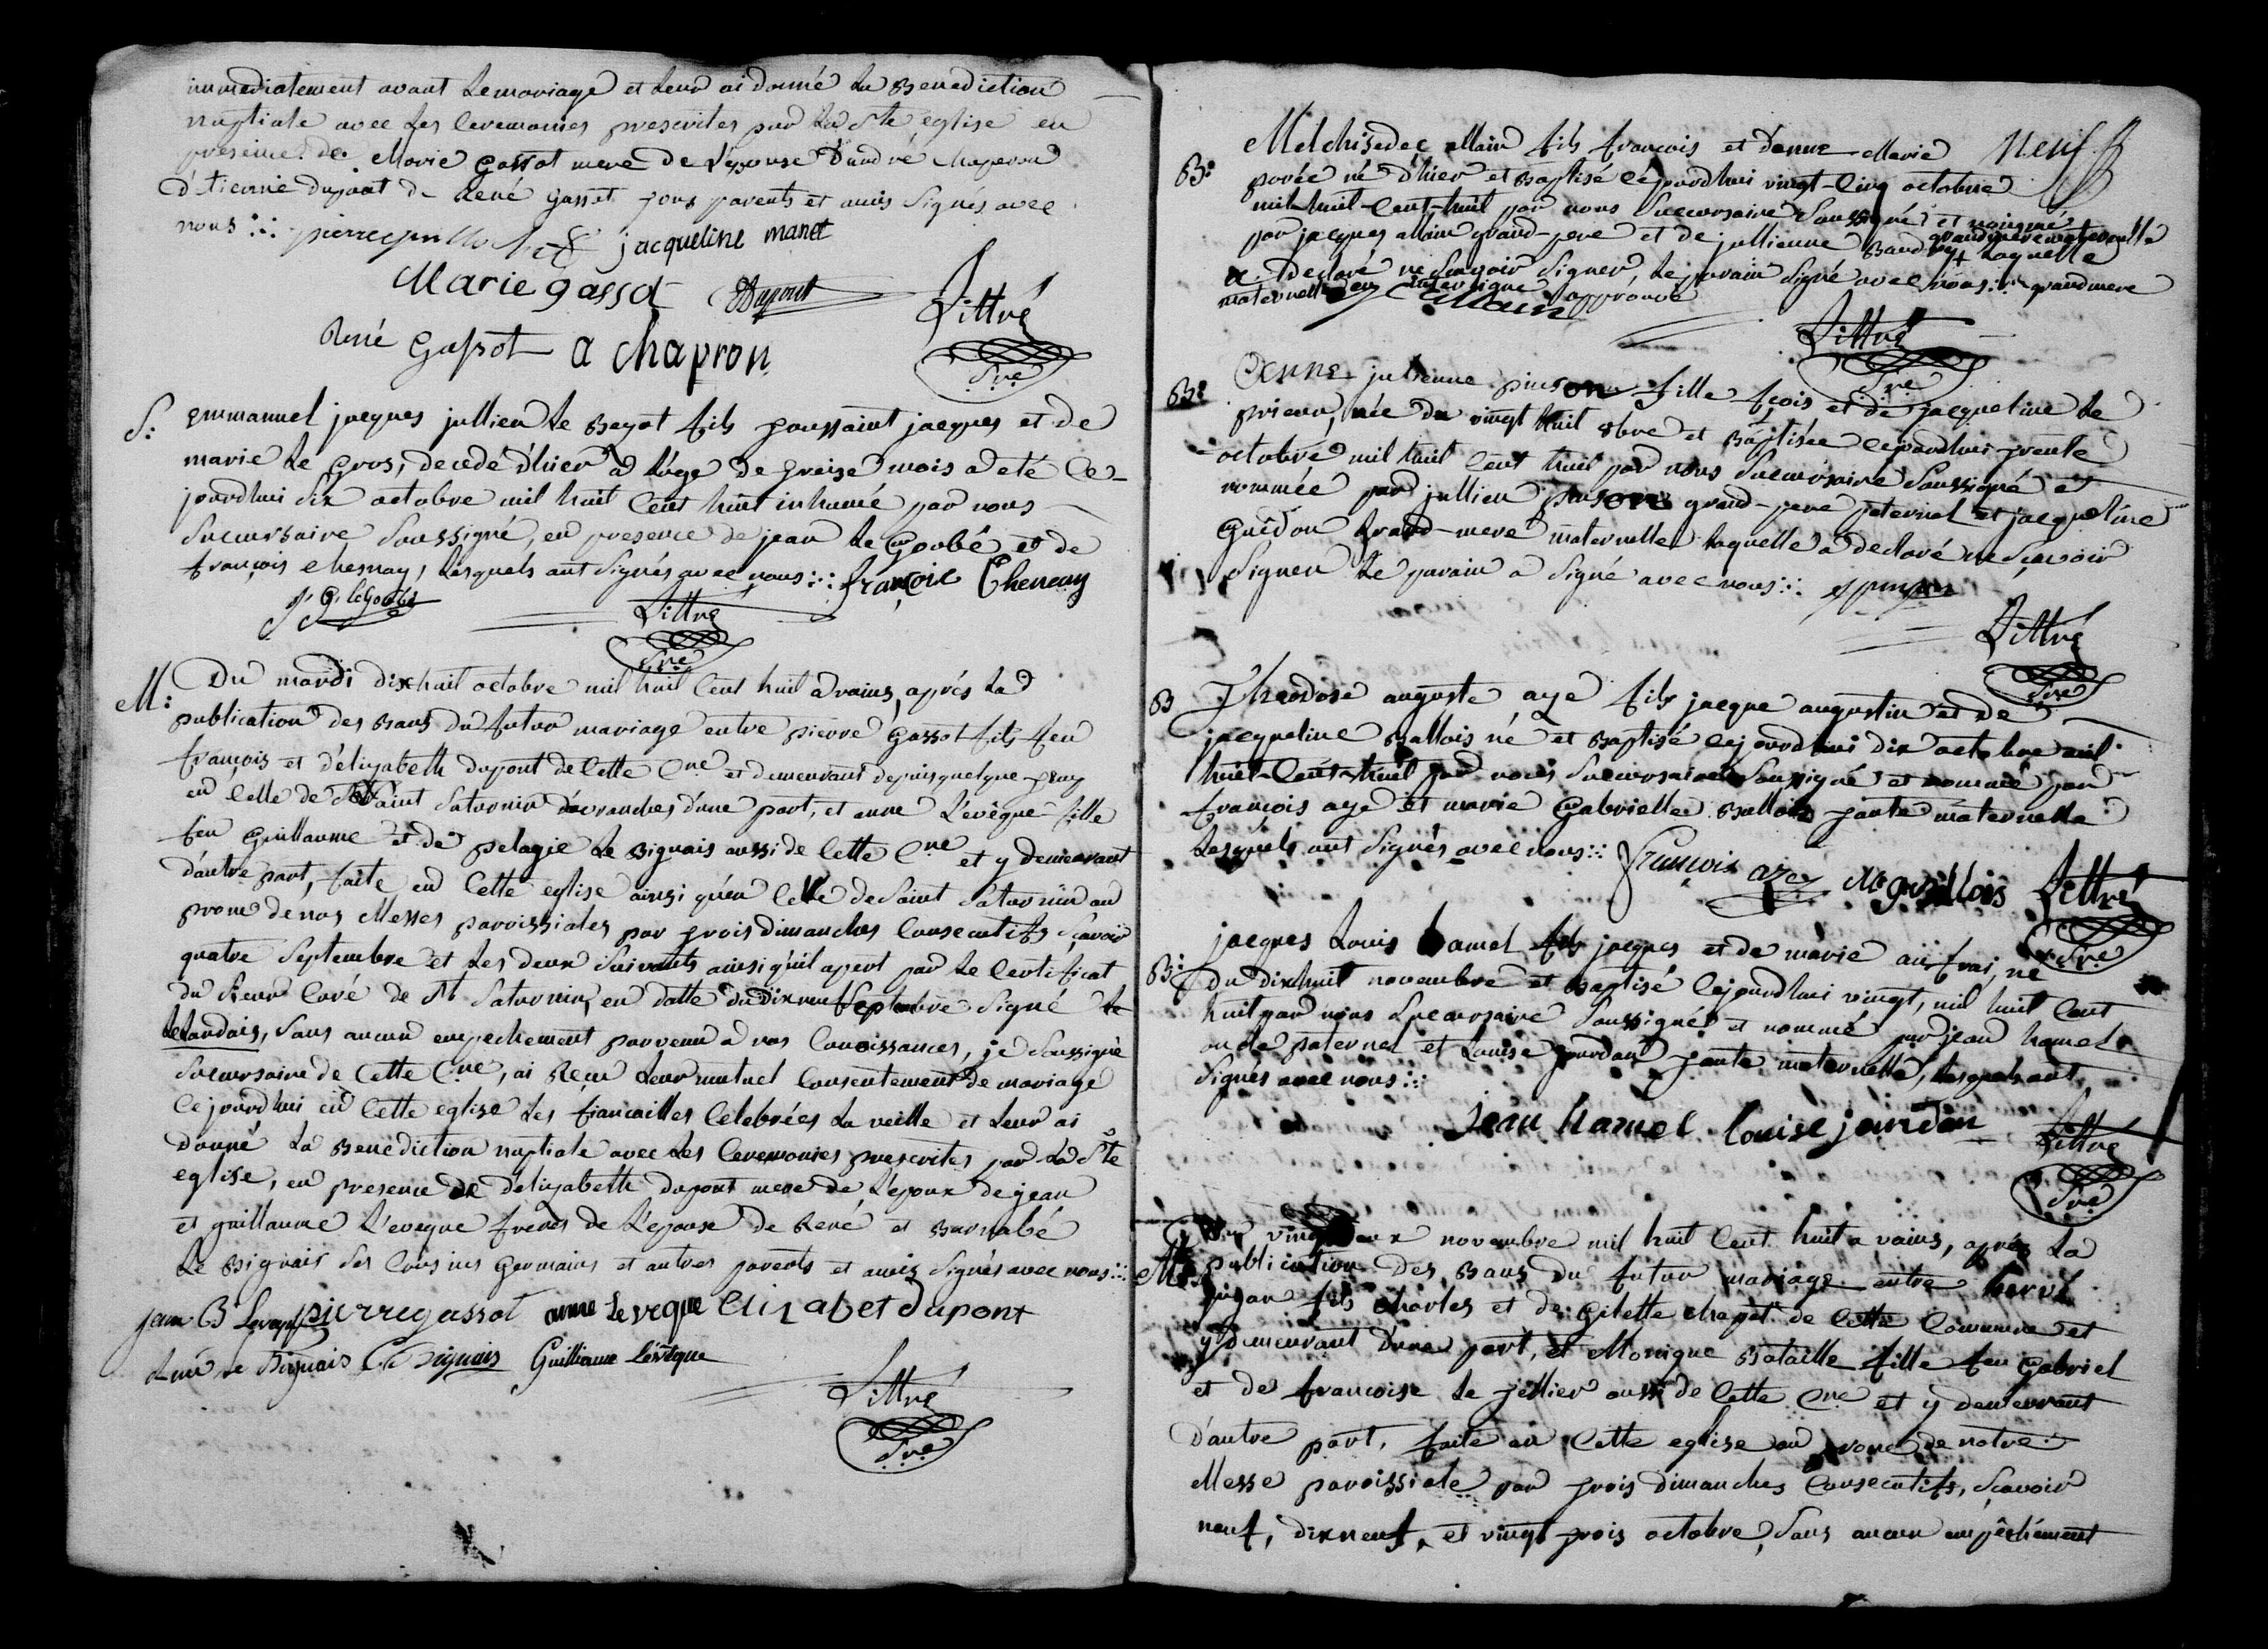 immediatement avant le mariage et leur ai donné la Benediction
nuptiale avec les ceremonies prescrites par la Ste eglise en
presence de Marie Gassot mere de l'epouse d'andré chaperon
d'etienne dupont de René gassot tous parents et amis signés avec
nous jacqueline manet
Marie gassot Dupont
Littré
René Gassot a chapron
Sre
S: emmanuel jacques jullien le Bayot fils toussaint jacques et de
marie le gros, decedé d'hier à l'âge de treise mois a eté ce-
jourdhui six octobre mil huit cent huit inhumé par nous
sucursaire soussigné, en presence de jean le Goubé et de
françois chesnay, lesquels ont signés avec nous françoie Chenay
J G le Goubé Littré
Sre
M: Du mardi dixhuit octobre mil huit cent huit à vains, après la
publication des Bans du futur mariage entre pierre gassot fils feu
françois et d'elizabeth dupont de cette Cne et demeurant depuis quelque tems
en celle de Saint Saturnin d'avranches d'une part, et anne l'evêque fille
feu guillaume et de pelagie le Bignais aussi de cette Cne et y demeurant
d'autre part, faite en cette eglise ainsi qu'en celle de Saint Saturnin au
prone de nos Messes paroissiales par trois dimanches consecutifs sçavoir
quatre septembre et les deux suivants ainsi qu'il apert par le certificat
du sieur curé de St Saturnin, en datte du dixneuf septembre signé le
lelandais, sans aucun empechement parvenu à nos conoissances, je soussigné
sucursaire de cette Cne, ai reçu leur mutuel consentement de mariage
cejourdhui en cette eglise les fiancailles celebrées la veille et leur ai
donné la Benediction nuptiale avec les ceremonies prescrites par la Ste
eglise, en presence de d'elizabeth dupont mere de l'epoux de jean
et guillaume l'eveque freres de l'epouse de René et Barnabé
le Bignais ses cousins germains et autres parents et amis signés avec nous
jean B Leveque pierre gassot anne Leveque Elizabet dupont
René le Bignais Bignais Guilliaume levêque
Littré
Sre
B: Melchisedec allain fils françois et d'anne Marie
porée né d'hier et Baptisé cejourdhui vingt-cinq octobre
mil-huit-cent-huit par nous sucursaire soussigné et nommé
par jacques allain grand-pere et de jullienne Baudry + laquelle
grandmere maternelle
a declaré ne sçavoir signer, le parain signé avec nous grandmere
maternelle en interligne approuvé
allain
Littré
Sre
B: Anne julienne pinson fille fçois et de jacqueline le
prieur, née du vingt huit 8bre et Baptisée cejourdhui trente
octobre mil huit cent huit par nous sucursaire soussigné et
nommée par jullien pinson grand-pere paternel et jacqueline
Guedon grand-mere maternelle laquelle a declaré ne sçavoir
signer le parain a signé avec nous
Littré
Sre
B Theodose auguste aze fils jacque augustin et de
jacqueline Ballois né et Baptisé cejourdhui dix octobre mil
huit-cent-huit par nous sucursaire soussigné et nommé par
françois aze et marie Gabrielle Ballois tante maternelle
lesquels ont signés avec nous
francois aze M g Ballois Littré
Sre
B: jacques Louis hamel fils jacques et de marie auffrai, né
du dixhuit novembre et Baptisé cejourdhui vingt, mil huit cent
huit par nous sucursaire soussigné et nommé par jean hamel
oncle paternel et Louise jourdan tante maternelle, lesquels ont
signés avec nous
jean hamel louise jourdan
Littré
Sre
M: Du vingt deux novembre mil huit cent huit a vains, après la
publication des Bans du futur mariage entre hervé
fils charles et de gilette chapet de cette commune et
y demeurant d'une part, et Monique Bataille fille feu gabriel
et de françoise le tellier aussi de cette Cne et y demeurant
d'autre part, faite en cette eglise au prone de notre
Messe paroissiale par trois dimanches consecutifs, sçavoir
neuf, dixneuf, et vingt trois octobre, sans aucun empêchement